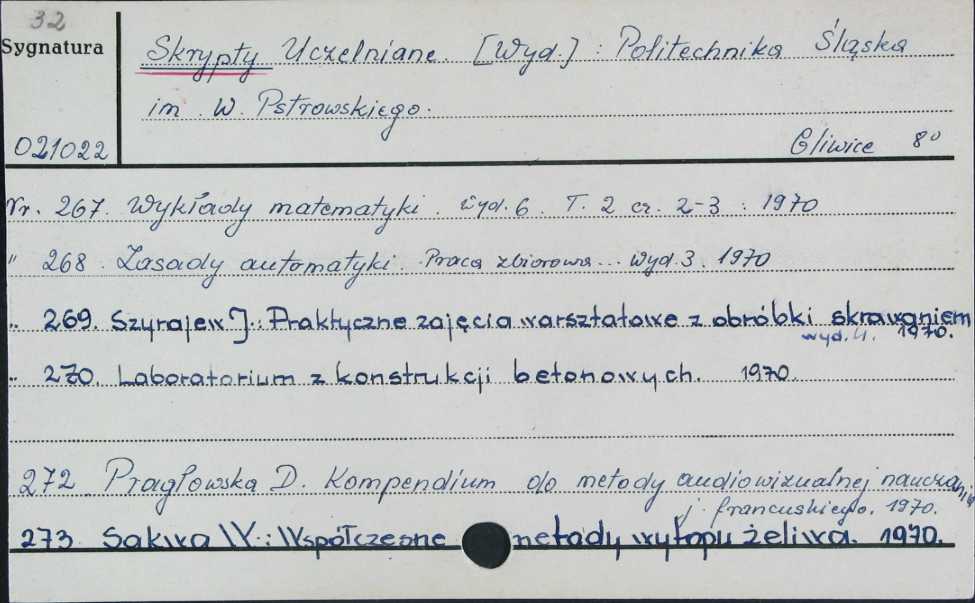 32
Sygnatura
Skrypty Uczelniane [Wyd.] : Politechnika Śląska
im. W. Pstrowskiego.
021022
Gliwice 8°
Nr. 267. Wykłady matematyki. Wyd. 6. T. 2 cz. 2-3 : 1970
" 268. Zasady automatyki. Praca zbiorowa... Wyd. 3. 1970
" 269. Szyrajew J.: Praktyczne zajęcia warsztatowe z obróbki skrawaniem
wyd. 4. 1970.
" 270. Laboratorium z konstrukcji betonowych. 1970.
272 Pragłowska D. Kompendium do metody audiowizualnej nauczania
j. francuskiego. 1970.
273 Sakwa W.: Współczesne metody wytopu żeliwa. 1970.